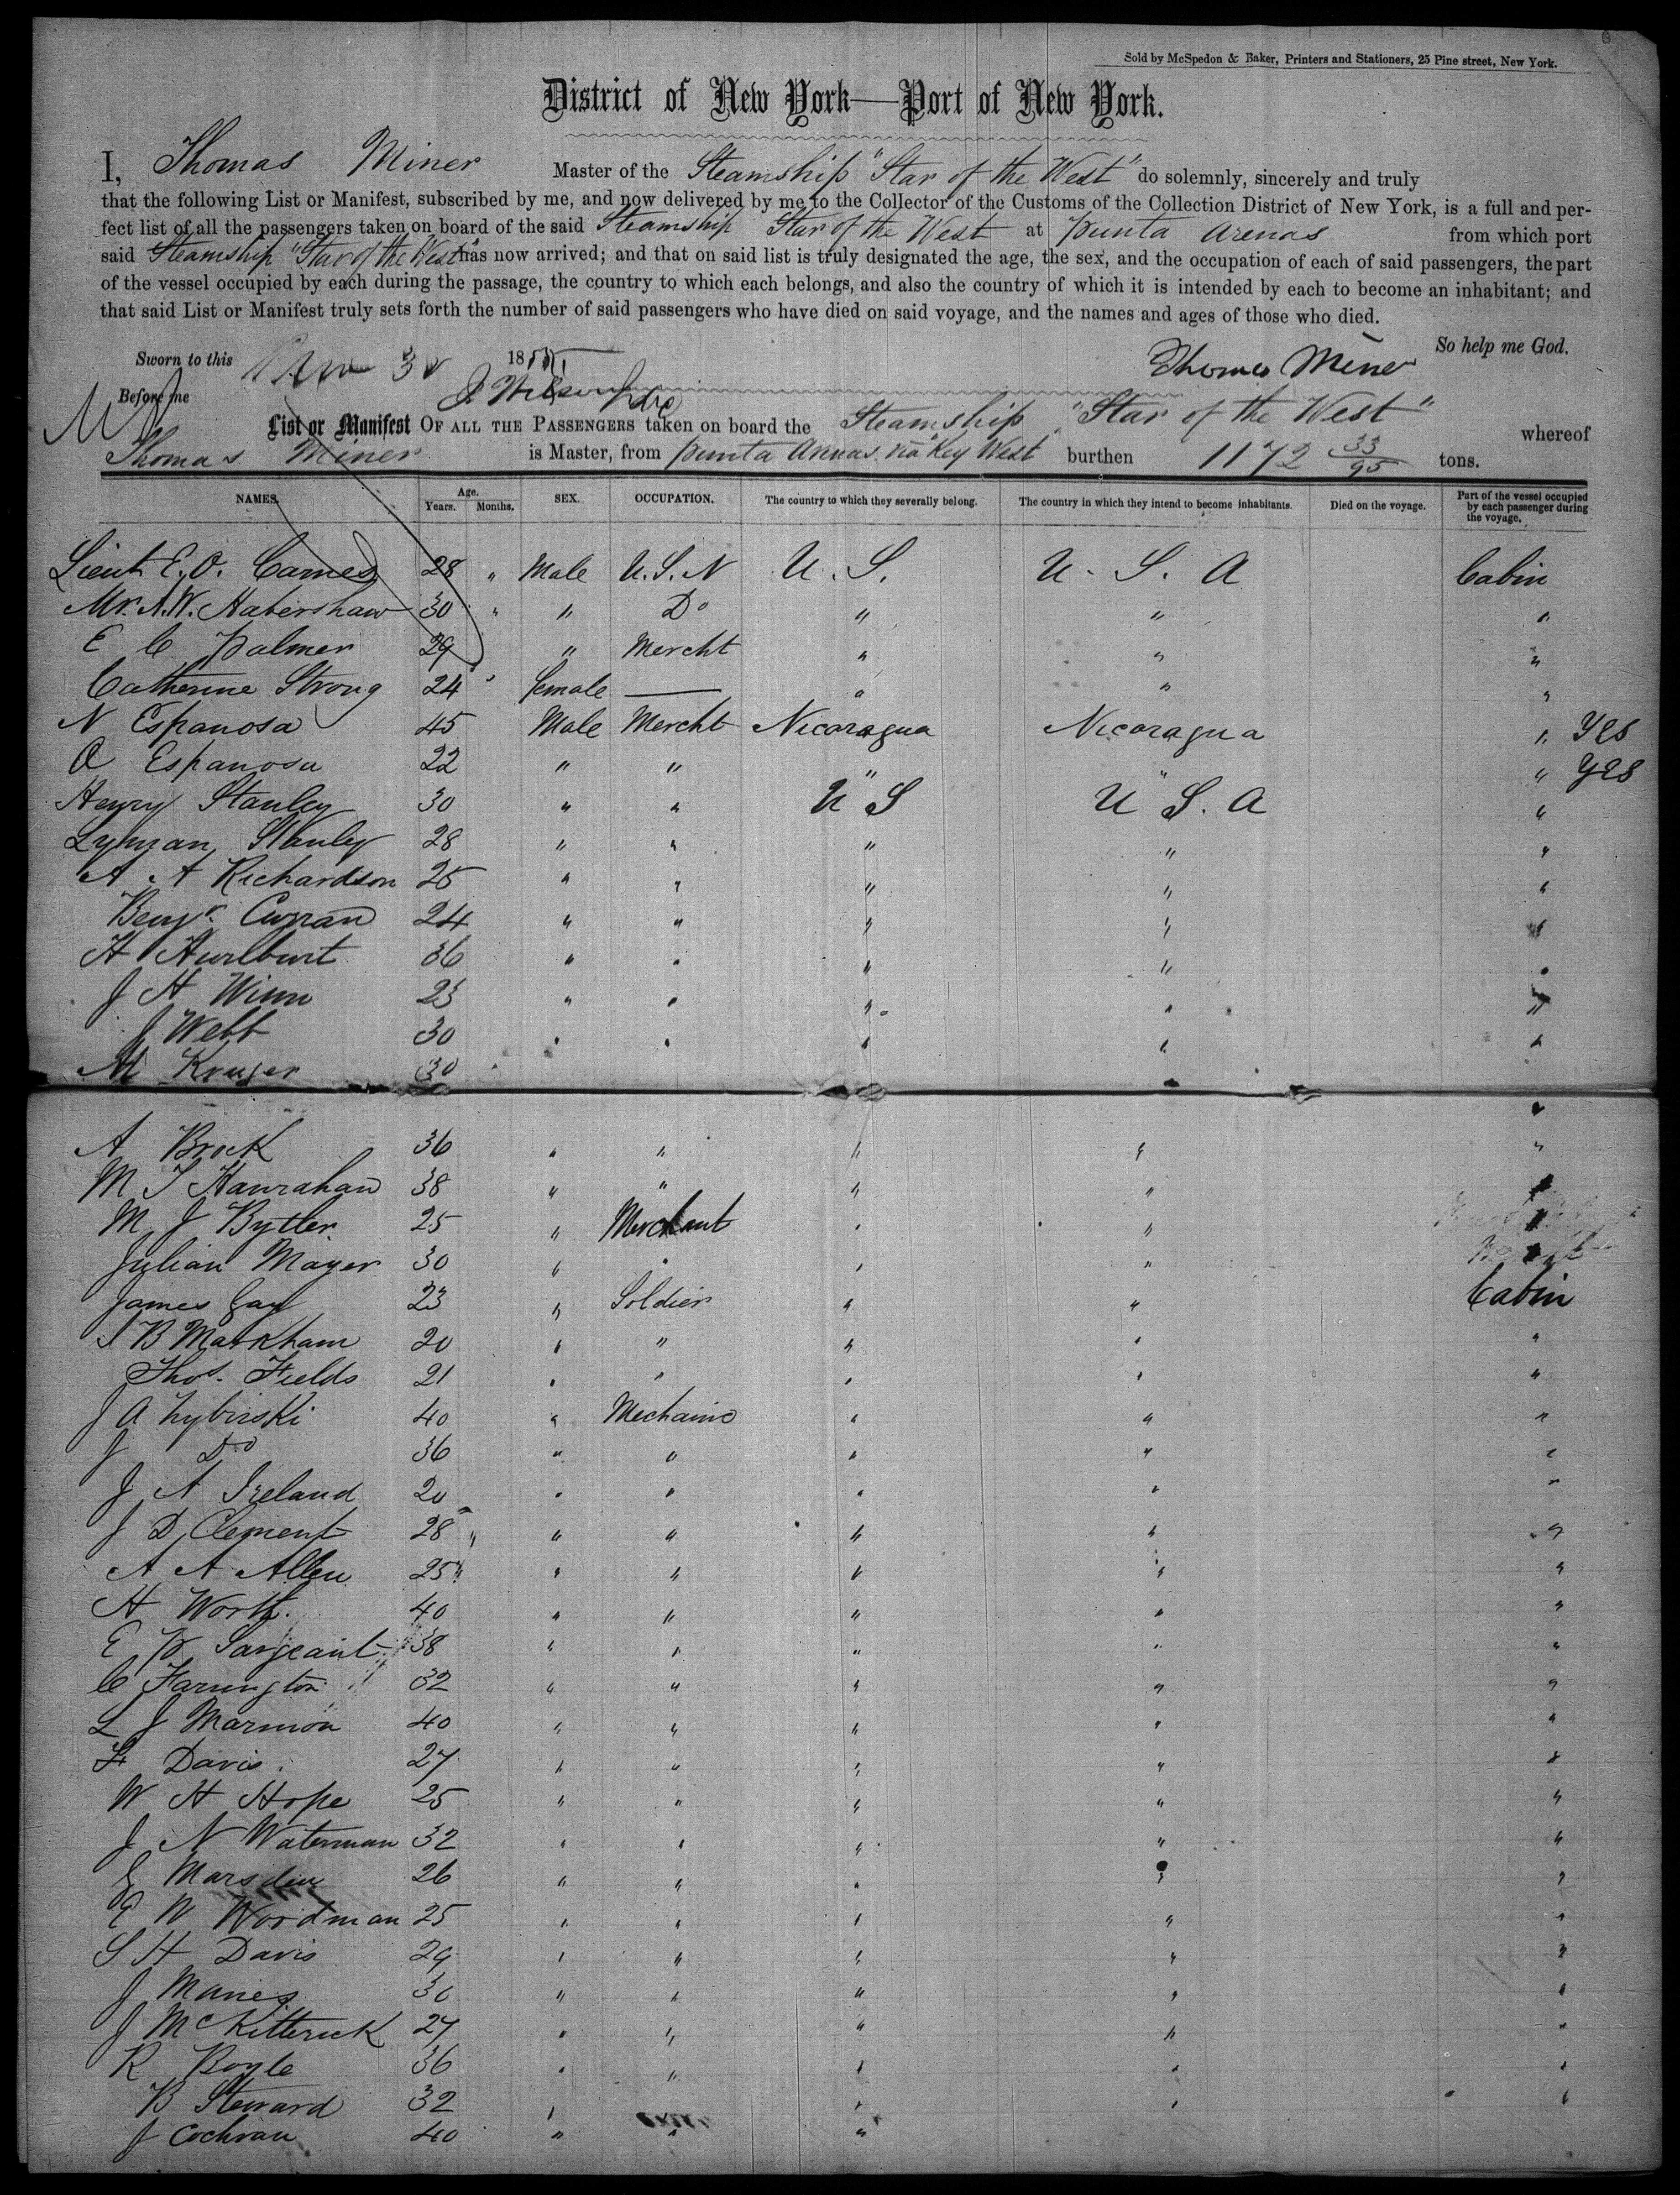 Sold by McSpedon & Baker, Printers and Stationers, 25 Pine street, New York.
District of New York—Port of New York.
I, Thomas Miner Master of the Steamship "Star of the West" do solemnly, sincerely and truly
that the following List or Manifest, subscribed by me, and now delivered by me to the Collector of the Customs of the Collection District of New York, is a full and per-
fect list of all the passengers taken on board of the said Steamship Star of the West at Punta Arenas from which port
said Steamship "Star of the West" has now arrived; and that on said list is truly designated the age, the sex, and the occupation of each of said passengers, the part
of the vessel occupied by each during the passage, the country to which each belongs, and also the country of which it is intended by each to become an inhabitant; and
that said List or Manifest truly sets forth the number of said passengers who have died on said voyage, and the names and ages of those who died.
So help me God.
Sworn to this 30 1855 Thomas Miner
Before me
List or Manifest OF ALL THE PASSENGERS taken on board the Steamship "Star of the West" whereof
Thomas Miner is Master, from Punta Arenas via Key West burthen 1172 33/95 tons.
NAMES. Age. Years. Months. SEX. OCCUPATION. The country to which they severally belong. The country in which they intend to become inhabitants. Died on the voyage. Part of the vessel occupied by each passenger during the voyage.
Lieut E. O. Carnes 28 " Male U.S.N U. S. U. S. A Cabin
Mr. A. W. Habershaw 30 " " Do " " "
E C Palmer 29 " Mercht " " "
Catherine Strong 24 " female — " " "
N Espanosa 45 Male Mercht Nicaragua Nicaragua " Yes
O Espanosa 22 " " " " " Yes
Henry Stanley 30 " " U S U S. A "
Lyman Stanley 28 " " " " "
A A Richardson 25 " " " " "
Benjn Curran 24 " " " " "
H Hurlburt 36 " " " " "
J H Winn 23 " " " " "
J Webb 30 " " " " "
M Kruger 30
A Brock 36 " " " " "
M T Hanrahan 38 " " " " "
M J Bytler 25 " Merchant " " "
Julian Mayer 30 " " " " "
James Gay 23 " Soldier " " Cabin
J B Markham 20 " " " " "
Thos. Fields 21 " " " " "
J A Zybirski 40 " Mechanic " " "
J Do 36 " " " " "
J A Ireland 20 " " " " "
J D Clement 28 " " " " " "
A A Allen 25 " " " " " "
H Worth. 40 " " " " "
E P Sargeant 38 " " " " "
C Farrington 32 " " " " "
L J Marmon 40 " " " " "
F Davis 27 " " " " "
W H Hope 25 " " " " "
J N Waterman 32 " " " " "
G Marsden 26 " " " " "
E W Woodman 25 " " " " "
S H Davis 29 " " " " "
J Manes 30 " " " " "
J McKitterick 27 " " " " "
R Boyle 36 " " " " "
B Steward 32 " " " "
J Cochran 40 " " "